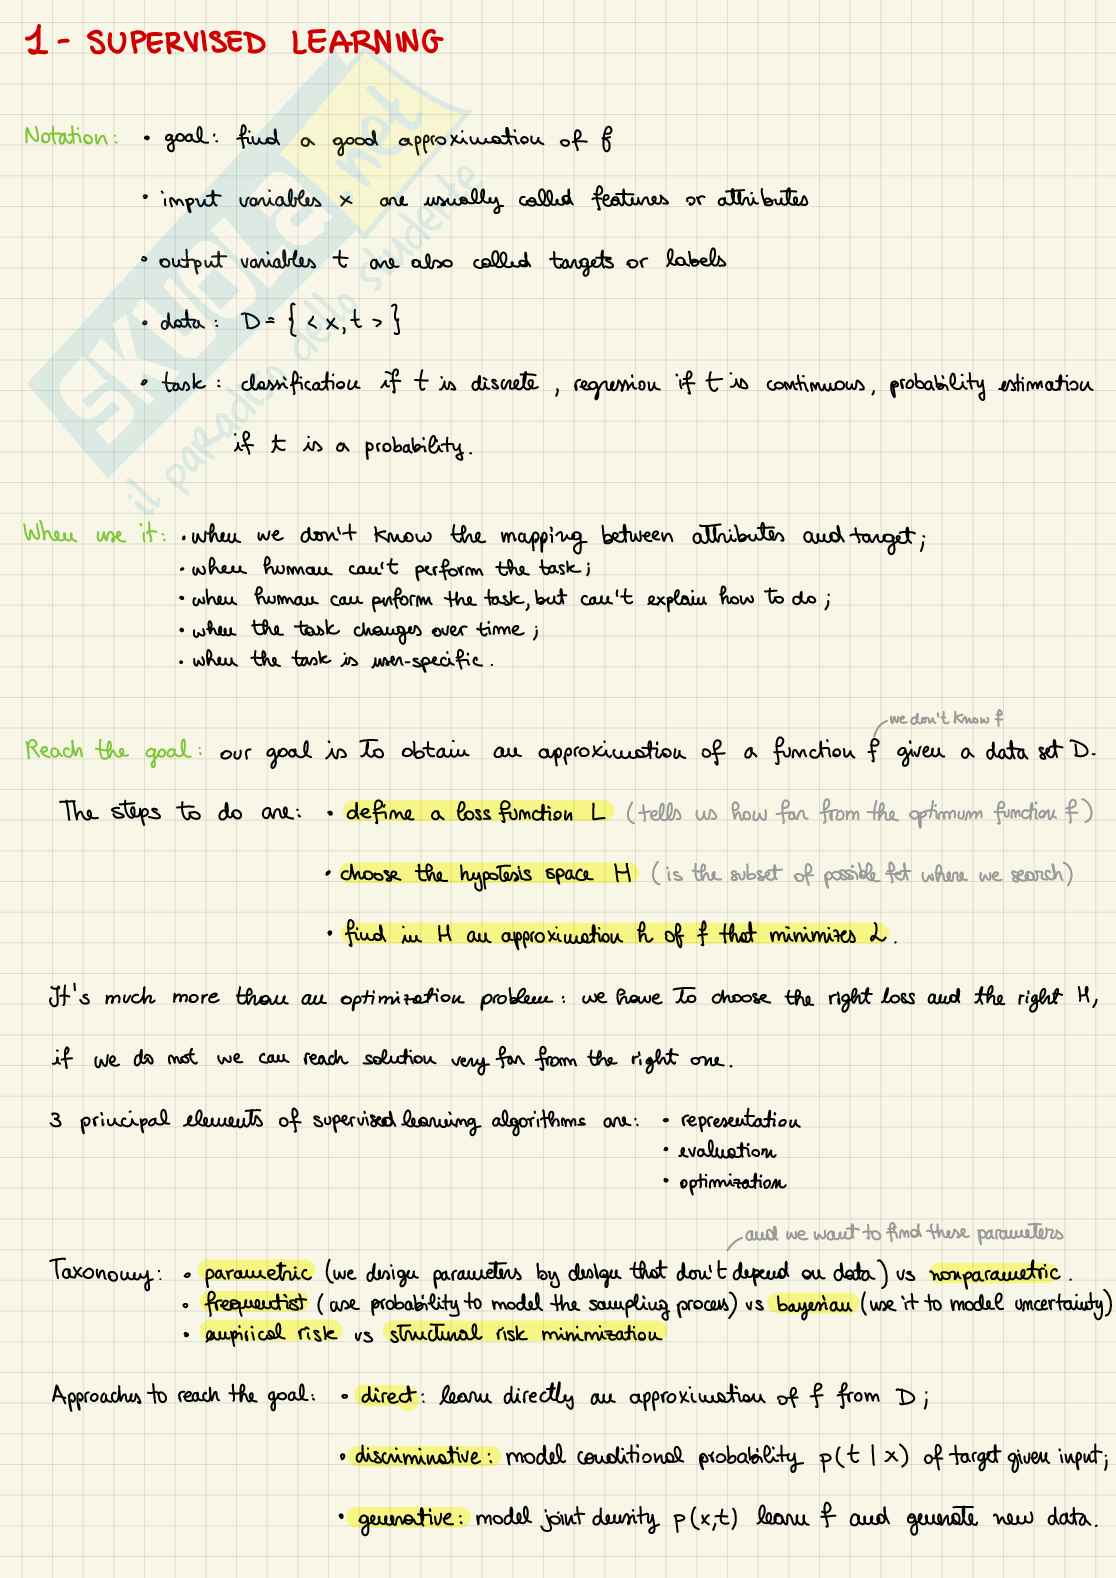 1 - SUPERVISED LEARNING
Notation: • goal: find a good approximation of f
• input variables x are usually called features or attributes
• output variables t are also called targets or labels
• data: D = { < x, t > }
• task: classification if t is discrete, regression if t is continuous, probability estimation
if t is a probability.
SKUOLA.net
il paradiso dello studente
When use it: • when we don't know the mapping between attributes and target;
• when human can't perform the task;
• when human can perform the task, but can't explain how to do;
• when the task changes over time;
• when the task is user-specific.
we don't know f
Reach the goal: our goal is to obtain an approximation of a function f given a data set D.
The steps to do are: • define a loss function L (tells us how far from the optimum function f)
• choose the hypotesis space H (is the subset of possible fct where we search)
• find in H an approximation h of f that minimizes L.
It's much more than an optimization problem: we have to choose the right loss and the right H,
if we do not we can reach solution very far from the right one.
3 principal elements of supervised learning algorithms are: • representation
• evaluation
• optimization
and we want to find these parameters
Taxonomy: • parametric (we design parameters by design that don't depend on data) vs nonparametric.
• frequentist (use probability to model the sampling process) vs bayesian (use it to model uncertainty)
• empirical risk vs structural risk minimization
Approaches to reach the goal: • direct: learn directly an approximation of f from D;
• discriminative: model conditional probability p(t | x) of target given input;
• generative: model joint density p(x,t) learn f and generate new data.